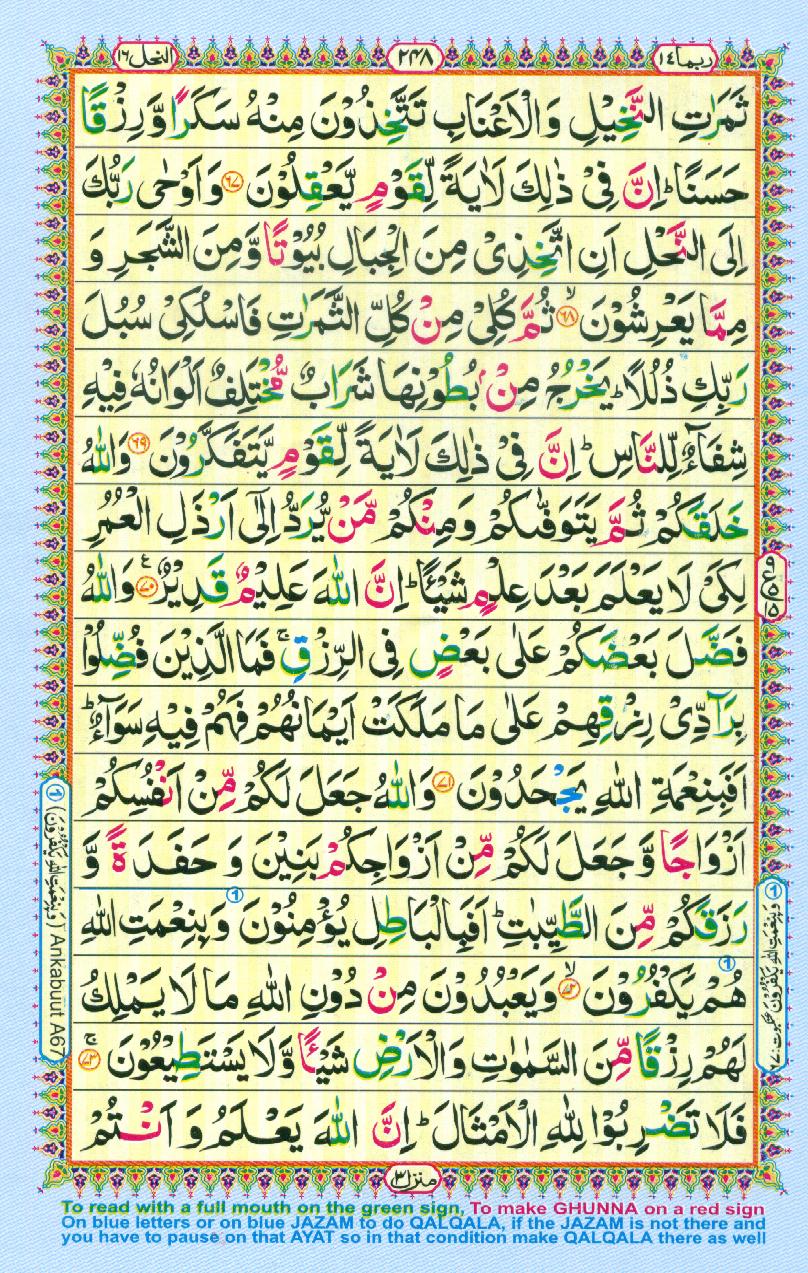 ربما ١٤
٢٤٨
النحل ١٦
ثَمَرٰتِ النَّخِيْلِ وَالْاَعْنَابِ تَتَّخِذُوْنَ مِنْهُ سَكَرًا وَّرِزْقًا
حَسَنًا ؕ اِنَّ فِىْ ذٰلِكَ لَاٰيَةً لِّقَوْمٍ يَّعْقِلُوْنَ ﴿۶۷﴾ وَاَوْحٰى رَبُّكَ
اِلَى النَّحْلِ اَنِ اتَّخِذِىْ مِنَ الْجِبَالِ بُيُوْتًا وَّمِنَ الشَّجَرِ وَ
مِمَّا يَعْرِشُوْنَ ۙ﴿۶۸﴾ ثُمَّ كُلِىْ مِنْ كُلِّ الثَّمَرٰتِ فَاسْلُكِىْ سُبُلَ
رَبِّكِ ذُلُلًا ؕ يَخْرُجُ مِنْۢ بُطُوْنِهَا شَرَابٌ مُّخْتَلِفٌ اَلْوَانُهٗ فِيْهِ
شِفَآءٌ لِّلنَّاسِ ؕ اِنَّ فِىْ ذٰلِكَ لَاٰيَةً لِّقَوْمٍ يَّتَفَكَّرُوْنَ ﴿۶۹﴾ وَاللّٰهُ
خَلَقَكُمْ ثُمَّ يَتَوَفّٰىكُمْ وَمِنْكُمْ مَّنْ يُّرَدُّ اِلٰٓى اَرْذَلِ الْعُمُرِ
لِكَىْ لَا يَعْلَمَ بَعْدَ عِلْمٍ شَيْـًٔا ؕ اِنَّ اللّٰهَ عَلِيْمٌ قَدِيْرٌ ﴿۷۰﴾ وَاللّٰهُ
فَضَّلَ بَعْضَكُمْ عَلٰى بَعْضٍ فِى الرِّزْقِ ۚ فَمَا الَّذِيْنَ فُضِّلُوْا
بِرَآدِّىْ رِزْقِهِمْ عَلٰى مَا مَلَكَتْ اَيْمَانُهُمْ فَهُمْ فِيْهِ سَوَآءٌ ؕ
اَفَبِنِعْمَةِ اللّٰهِ يَجْحَدُوْنَ ﴿۷۱﴾ وَاللّٰهُ جَعَلَ لَكُمْ مِّنْ اَنْفُسِكُمْ
اَزْوَاجًا وَّجَعَلَ لَكُمْ مِّنْ اَزْوَاجِكُمْ بَنِيْنَ وَ حَفَدَةً وَّ
رَزَقَكُمْ مِّنَ الطَّيِّبٰتِ ؕ اَفَبِالْبَاطِلِ يُؤْمِنُوْنَ وَبِنِعْمَتِ اللّٰهِ
هُمْ يَكْفُرُوْنَ ۙ﴿۷۲﴾ وَيَعْبُدُوْنَ مِنْ دُوْنِ اللّٰهِ مَا لَا يَمْلِكُ
لَهُمْ رِزْقًا مِّنَ السَّمٰوٰتِ وَالْاَرْضِ شَيْـًٔا وَّلَا يَسْتَطِيْعُوْنَ ۚ﴿۷۳﴾
فَلَا تَضْرِبُوْا لِلّٰهِ الْاَمْثَالَ ؕ اِنَّ اللّٰهَ يَعْلَمُ وَ اَنْتُمْ
منزل ٣
① (وَبِنِعْمَتِ اللّٰهِ يَكْفُرُوْنَ) Ankabuut A67
① وَبِنِعْمَتِ اللّٰهِ يَكْفُرُوْنَ
To read with a full mouth on the green sign, To make GHUNNA on a red sign
On blue letters or on blue JAZAM to do QALQALA, if the JAZAM is not there and
you have to pause on that AYAT so in that condition make QALQALA there as well